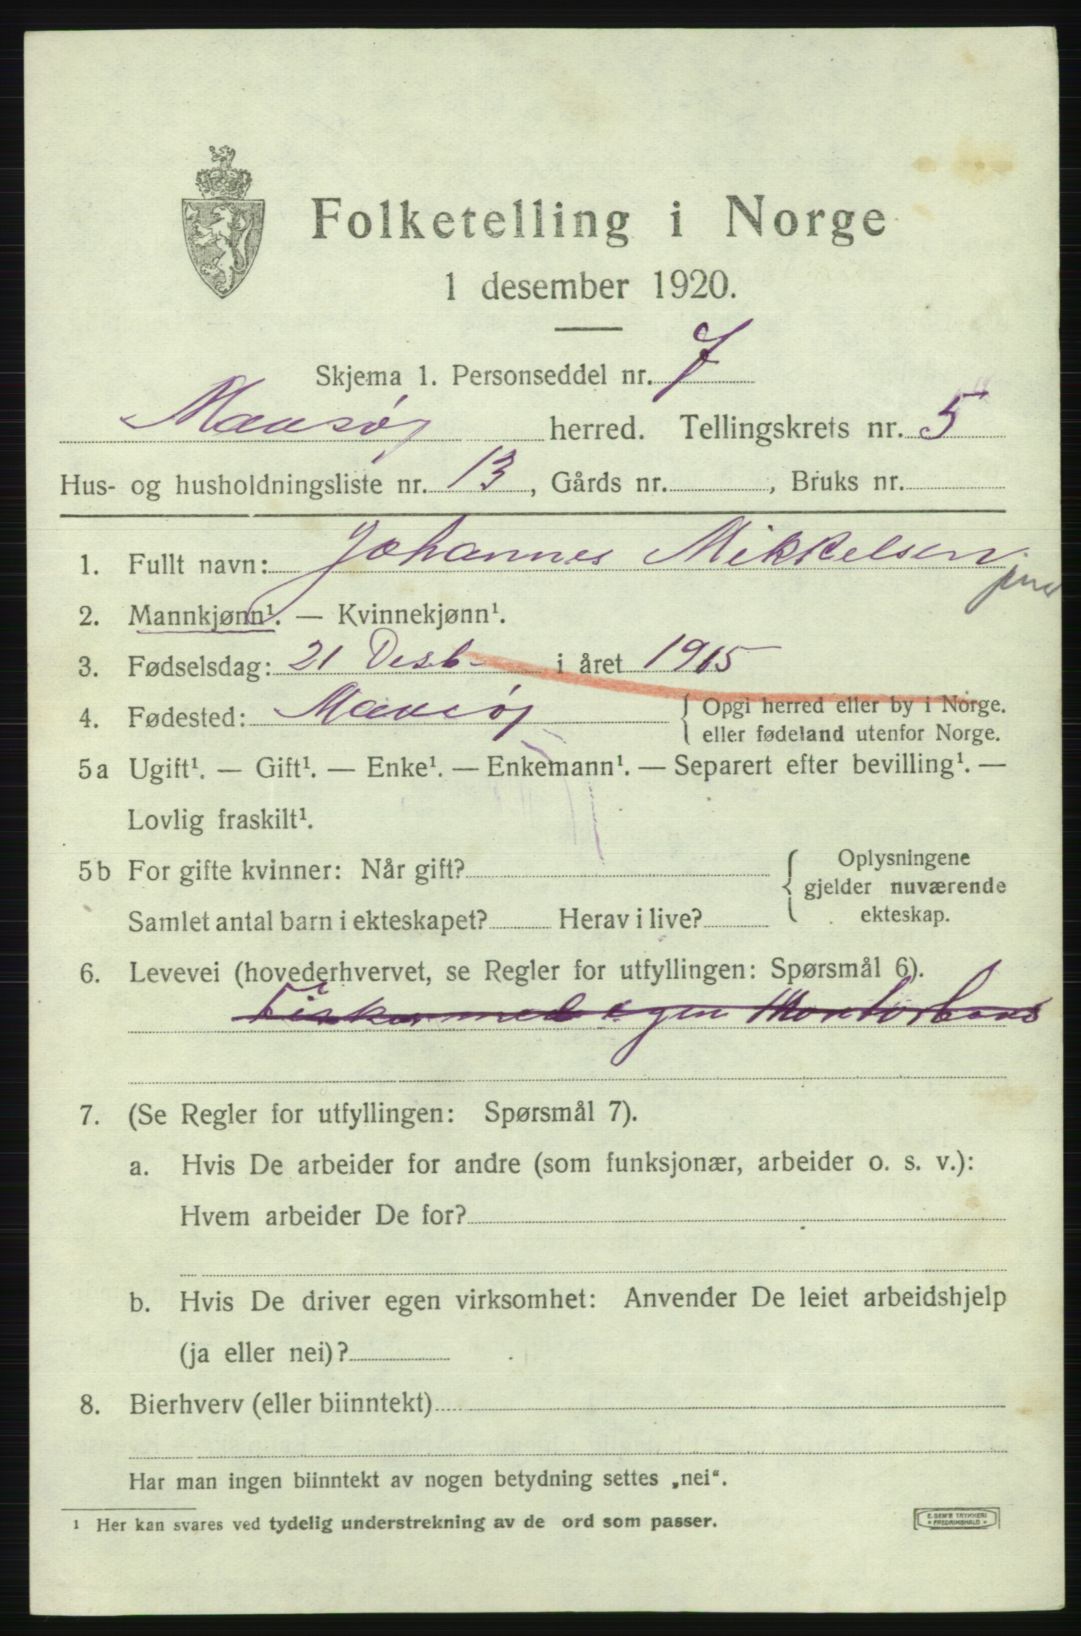 Folketelling i Norge
1 desember 1920.
Skjema 1. Personseddel nr. 7
Maasøy herred. Tellingskrets nr. 5
Hus- og husholdningsliste nr. 13, Gårds nr. , Bruks nr.
1. Fullt navn: Johannes Mikkelsen
2. Mannkjønn¹. — Kvinnekjønn¹.
3. Fødselsdag: 21 Desb. i året 1915
4. Fødested: Maasøy { Opgi herred eller by i Norge.
eller fødeland utenfor Norge.
5a Ugift¹. — Gift¹. — Enke¹. — Enkemann¹. — Separert efter bevilling¹. —
Lovlig fraskilt¹.
5b For gifte kvinner: Når gift? { Oplysningene
gjelder nuværende
ekteskap.
Samlet antal barn i ekteskapet? Herav i live?
6. Levevei (hovederhvervet, se Regler for utfyllingen: Spørsmål 6).
Fisker med egen Motorbaad
7. (Se Regler for utfyllingen: Spørsmål 7).
a. Hvis De arbeider for andre (som funksjonær, arbeider o. s. v.):
Hvem arbeider De for?
b. Hvis De driver egen virksomhet: Anvender De leiet arbeidshjelp
(ja eller nei)?
8. Bierhverv (eller biinntekt)
Har man ingen biinntekt av nogen betydning settes „nei“.
¹ Her kan svares ved tydelig understrekning av de ord som passer.
E. SEM'S TRYKKERI
* FREDRIKSHALD *